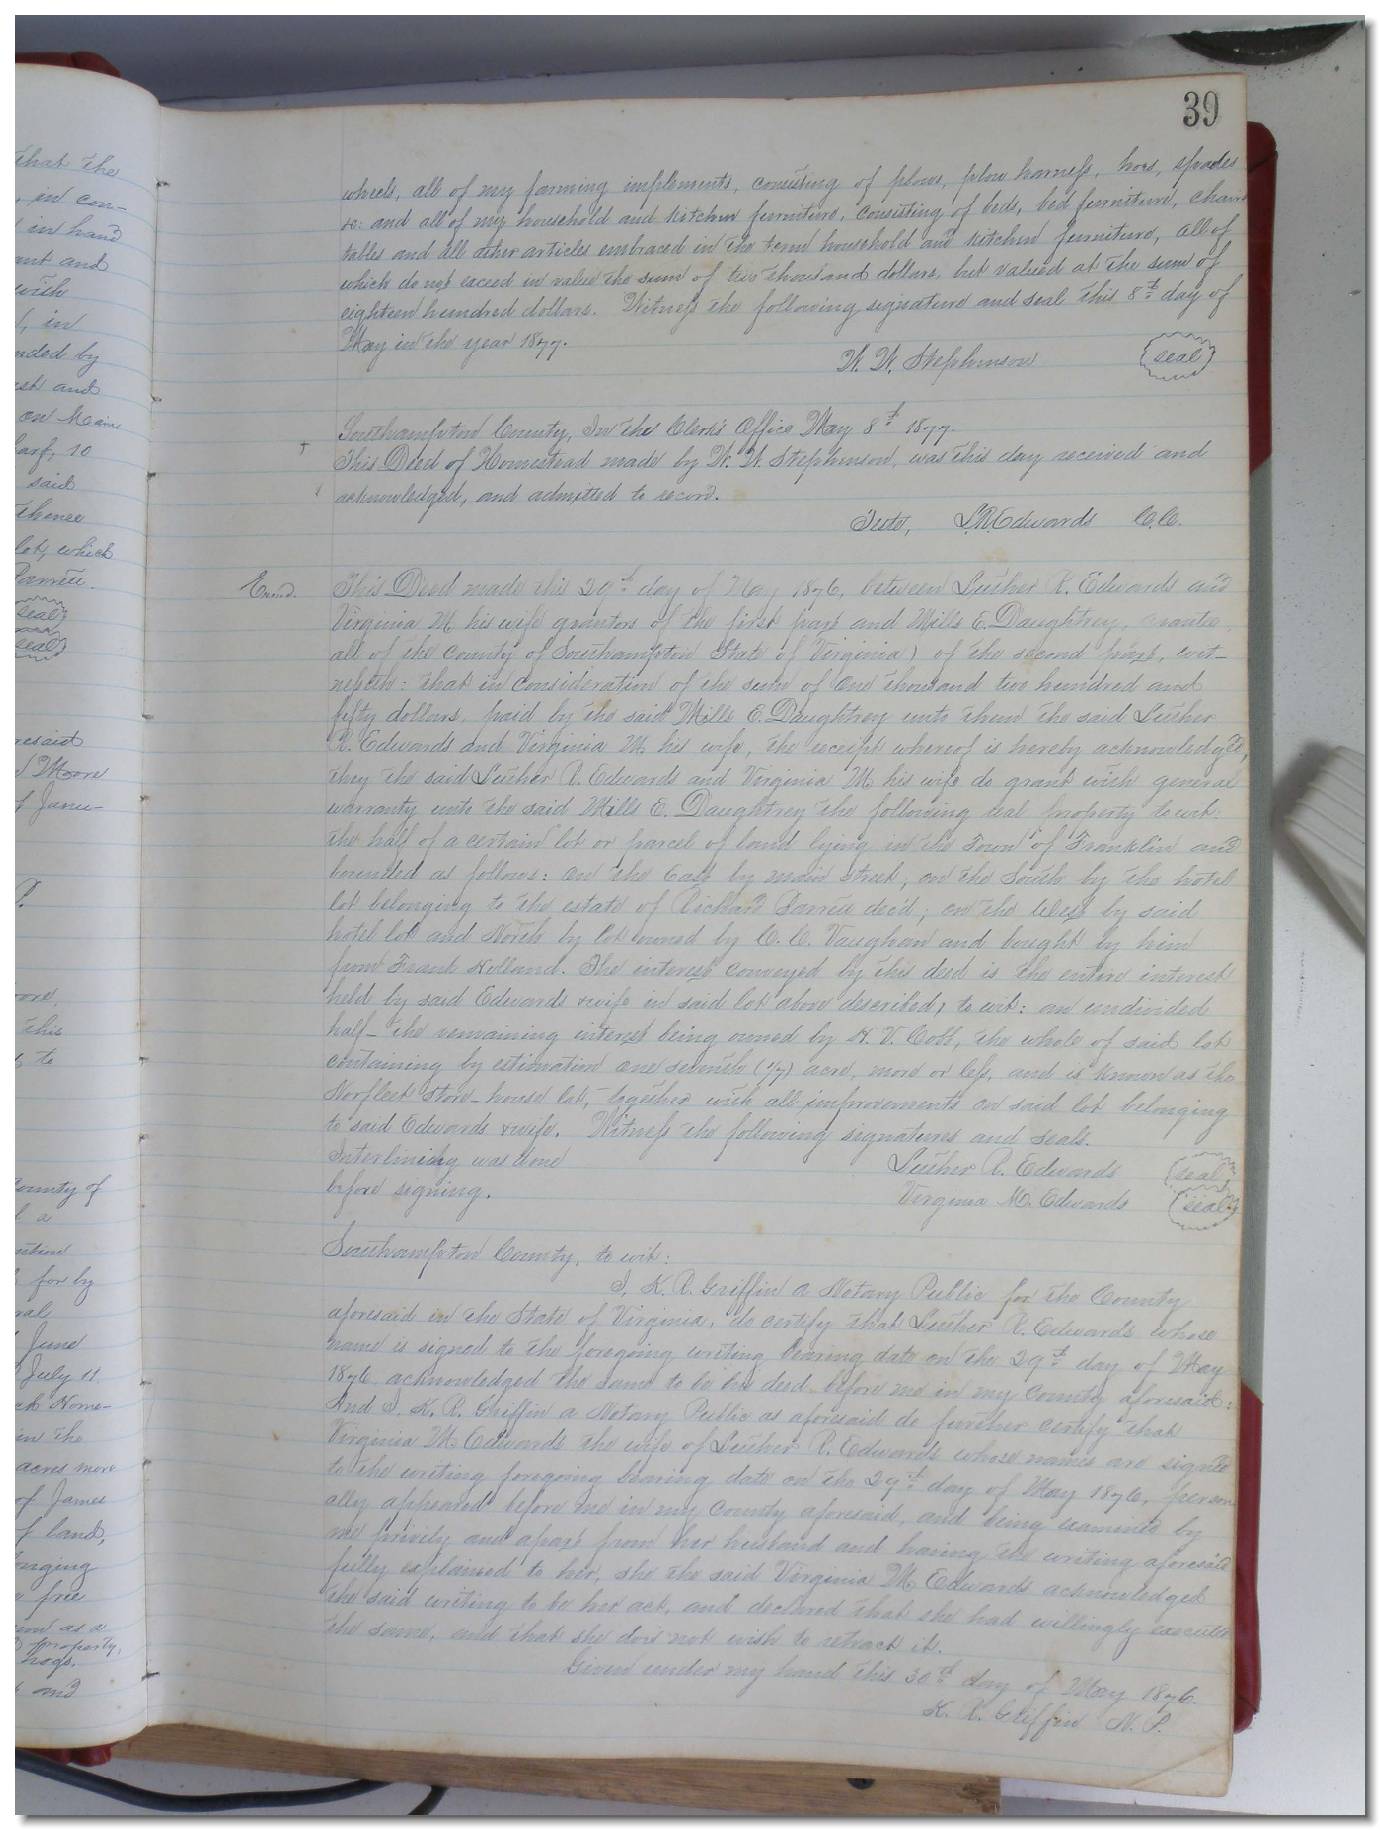 39
that the
, in con-
in hand
ant and
with
, in
nded by
est and
on Main
10
said
thence
lot, which
Barrett.
seal
seal
resaid
Moore
of Janu-
this
to
County of
a
for by
June
July 11
Home-
in the
acres more
of James
of land,
longing
free
as a
property,
hogs.
and
wheels, all of my farming implements, consisting of plows, plow harness, hoes, spades
&c: and all of my household and kitchen furniture, consisting of beds, bed furniture, chairs
tables and all other articles embraced in the term household and kitchen furniture, all of
which do not exceed in value the sum of two thousand dollars, but valued at the sum of
eighteen hundred dollars. Witness the following signature and seal this 8th day of
May in the year 1877.
W. W. Stephenson seal
Southampton County, In the Clerk's Office May 8th 1877.
This Deed of Homestead made by W. W. Stephenson, was this day received and
acknowledged, and admitted to record.
Teste, L.R. Edwards C.C.
Exmd. This Deed made this 29th day of May 1876, between Luther R. Edwards and
Virginia M. his wife grantors of the first part and Mills E. Daughtrey, grantee,
all of the County of Southampton State of Virginia, of the second part, wit-
nesseth: that in consideration of the sum of one thousand two hundred and
fifty dollars, paid by the said Mills E. Daughtrey unto them the said Luther
R. Edwards and Virginia M. his wife, the receipt whereof is hereby acknowledged,
they the said Luther R. Edwards and Virginia M. his wife do grant with general
warranty unto the said Mills E. Daughtrey the following real property to wit:
the half of a certain lot or parcel of land lying in the Town of Franklin and
bounded as follows: on the East by main street, on the South by the hotel
lot belonging to the estate of Richard Barrett dec'd; on the West by said
hotel lot and North by lot owned by C. C. Vaughan and bought by him
from Frank Holland. The interest conveyed by this deed is the entire interest
held by said Edwards & wife in said lot above described, to wit: an undivided
half- the remaining interest being owned by H. V. Cobb, the whole of said lot
containing by estimation one seventh (1/7) acre, more or less, and is known as the
Norfleet store-house lot, together with all improvements on said lot belonging
to said Edwards & wife. Witness the following signatures and seals.
Interlining was done Luther R. Edwards seal
before signing. Virginia M. Edwards seal
Southampton County, to wit:
I, K. R. Griffin a Notary Public for the County
aforesaid in the State of Virginia, do certify that Luther R. Edwards whose
name is signed to the foregoing writing bearing date on the 29th day of May
1876 acknowledged the same to be his deed before me in my County aforesaid:
And I, K. R. Griffin a Notary Public as aforesaid do further certify that
Virginia M. Edwards the wife of Luther R. Edwards whose names are signed
to the writing foregoing bearing date on the 29th day of May 1876, person
ally appeared before me in my County aforesaid, and being examined by
me privily and apart from her husband and having the writing aforesaid
fully explained to her, she the said Virginia M. Edwards acknowledged
the said writing to be her act, and declared that she had willingly executed
the same, and that she does not wish to retract it.
Given under my hand this 30th day of May 1876.
K. R. Griffin N. P.